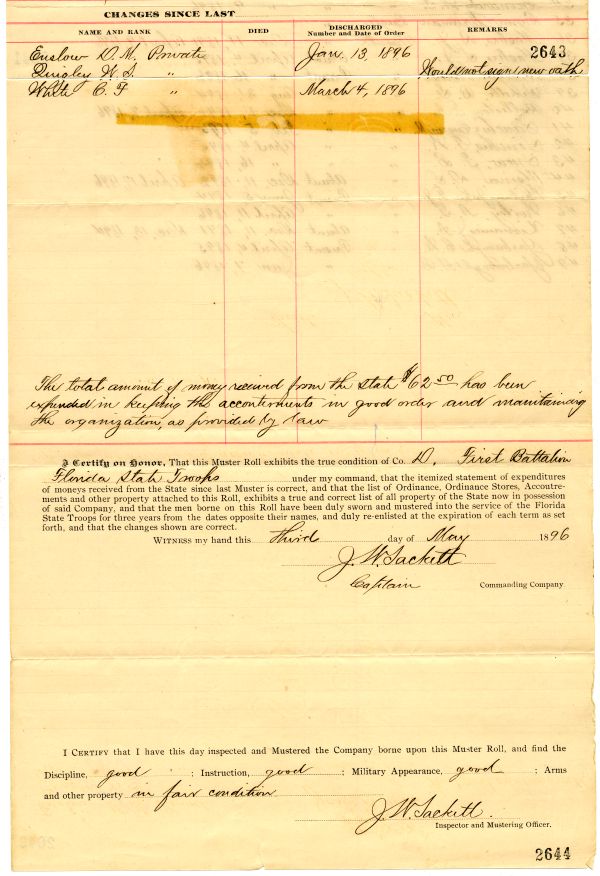 CHANGES SINCE LAST
NAME AND RANK DIED DISCHARGED Number and Date of Order REMARKS
Enslow D. M. Private Jan. 13, 1896 2643
Quigley W. S. " Would not sign new oath
White C. F " March 4, 1896
The total amount of money received from the State $62 50 has been
expended in keeping the accouterments in good order and maintaining
the organization, as provided by law
I Certify on Honor, That this Muster Roll exhibits the true condition of Co. D. First Battalion
Florida State Troops under my command, that the itemized statement of expenditures
of moneys received from the State since last Muster is correct, and that the list of Ordinance, Ordinance Stores, Accoutre-
ments and other property attached to this Roll, exhibits a true and correct list of all property of the State now in possession
of said Company, and that the men borne on this Roll have been duly sworn and mustered into the service of the Florida
State Troops for three years from the dates opposite their names, and duly re-enlisted at the expiration of each term as set
forth, and that the changes shown are correct.
WITNESS my hand this third day of May 1896
J. W. Sackett
Captain Commanding Company.
I CERTIFY that I have this day inspected and Mustered the Company borne upon this Muster Roll, and find the
Discipline, good ; Instruction, good ; Military Appearance, good ; Arms
and other property in fair condition
J. W. Sackett.
Inspector and Mustering Officer.
2644